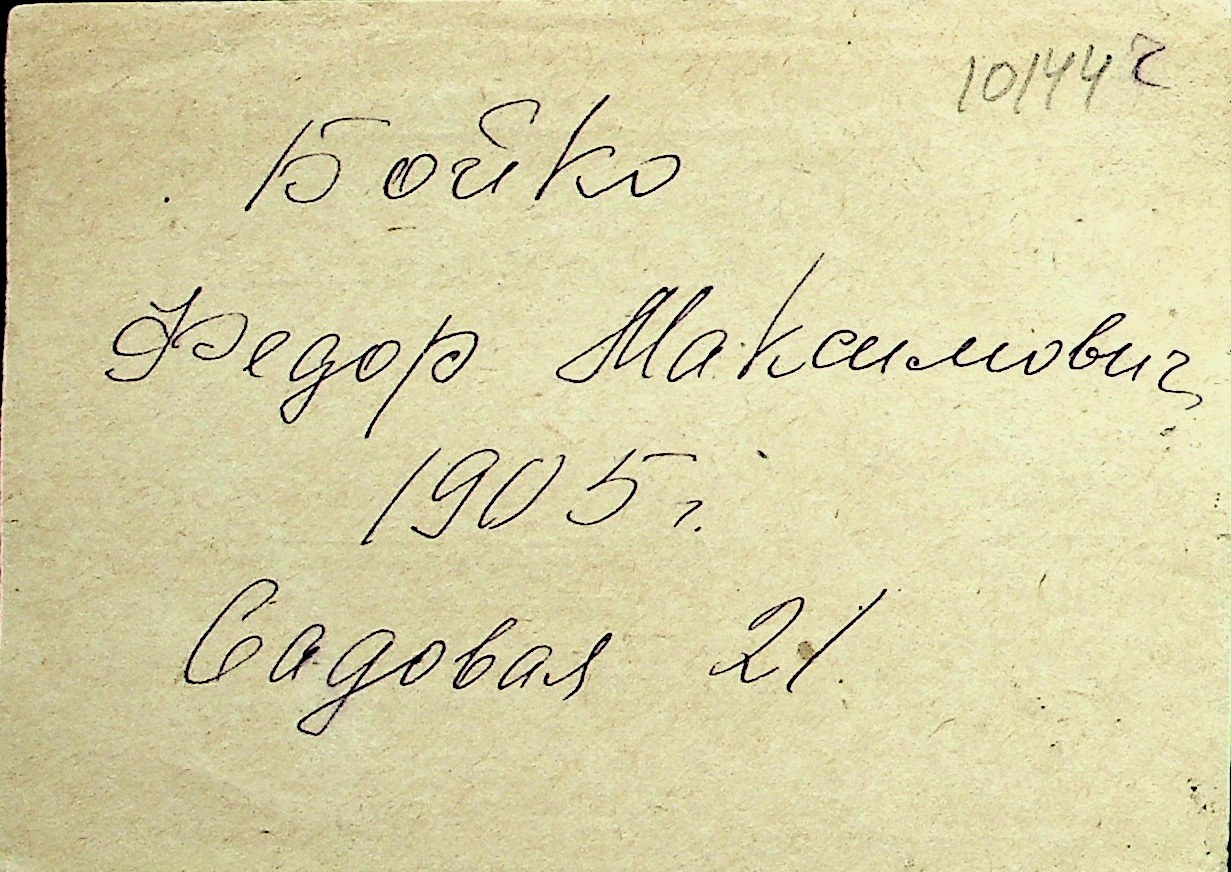 10144г
Бойко
Федор Максимович
1905 г.
Садовая 21.